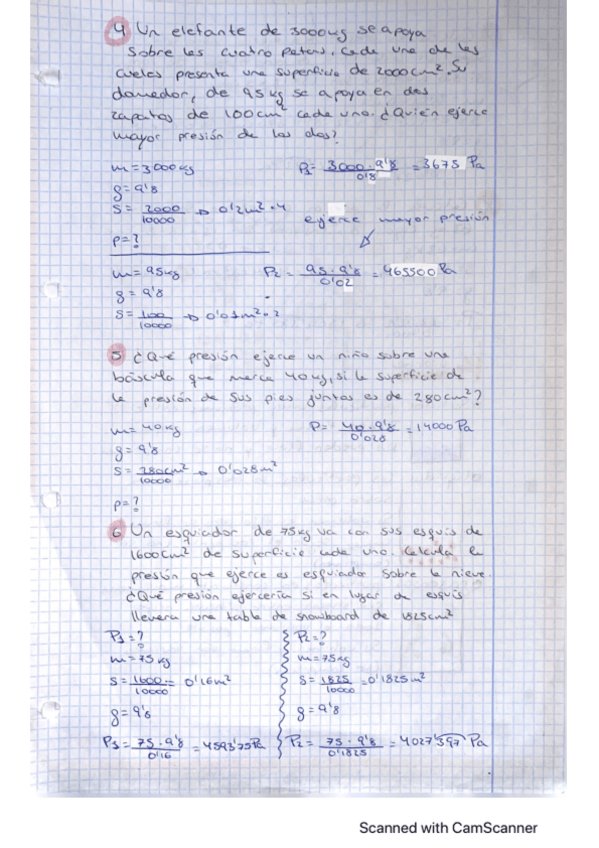 4 Un elefante de 3000kg se apoya
sobre las cuatro patas, cada una de las
cuales presenta una superficie de 2000cm². Su
domador, de 95kg se apoya en dos
zapatos de 100cm² cada uno. ¿Quién ejerce
mayor presión de los dos?
m = 3000kg P₁ = 3000·9'8 / 0'8 = 3675 Pa
g = 9'8
S = 2000/10000 → 0'2m² · 4
ejerce mayor presión
P = ?
m = 95kg P₂ = 95·9'8 / 0'02 = 465500 Pa
g = 9'8
S = 100/10000 → 0'01m² · 2
5 ¿Qué presión ejerce un niño sobre una
báscula que marca 40kg, si la superficie de
la presión de sus pies juntos es de 280cm²?
m = 40kg P = 40·9'8 / 0'028 = 14000 Pa
g = 9'8
S = 280cm²/10000 → 0'028m²
P = ?
6 Un esquiador de 75kg va con sus esquís de
1600cm² de superficie cada uno. Calcula la
presión que ejerce es esquiador sobre la nieve.
¿Qué presión ejercería si en lugar de esquís
llevara una tabla de snowboard de 1825cm²
P₁ = ? P₂ = ?
m = 75kg m = 75kg
S = 1600/10000 = 0'16m² S = 1825/10000 = 0'1825m²
g = 9'8 g = 9'8
P₁ = 75·9'8 / 0'16 = 4593'75Pa P₂ = 75·9'8 / 0'1825 = 4027'397 Pa
Scanned with CamScanner